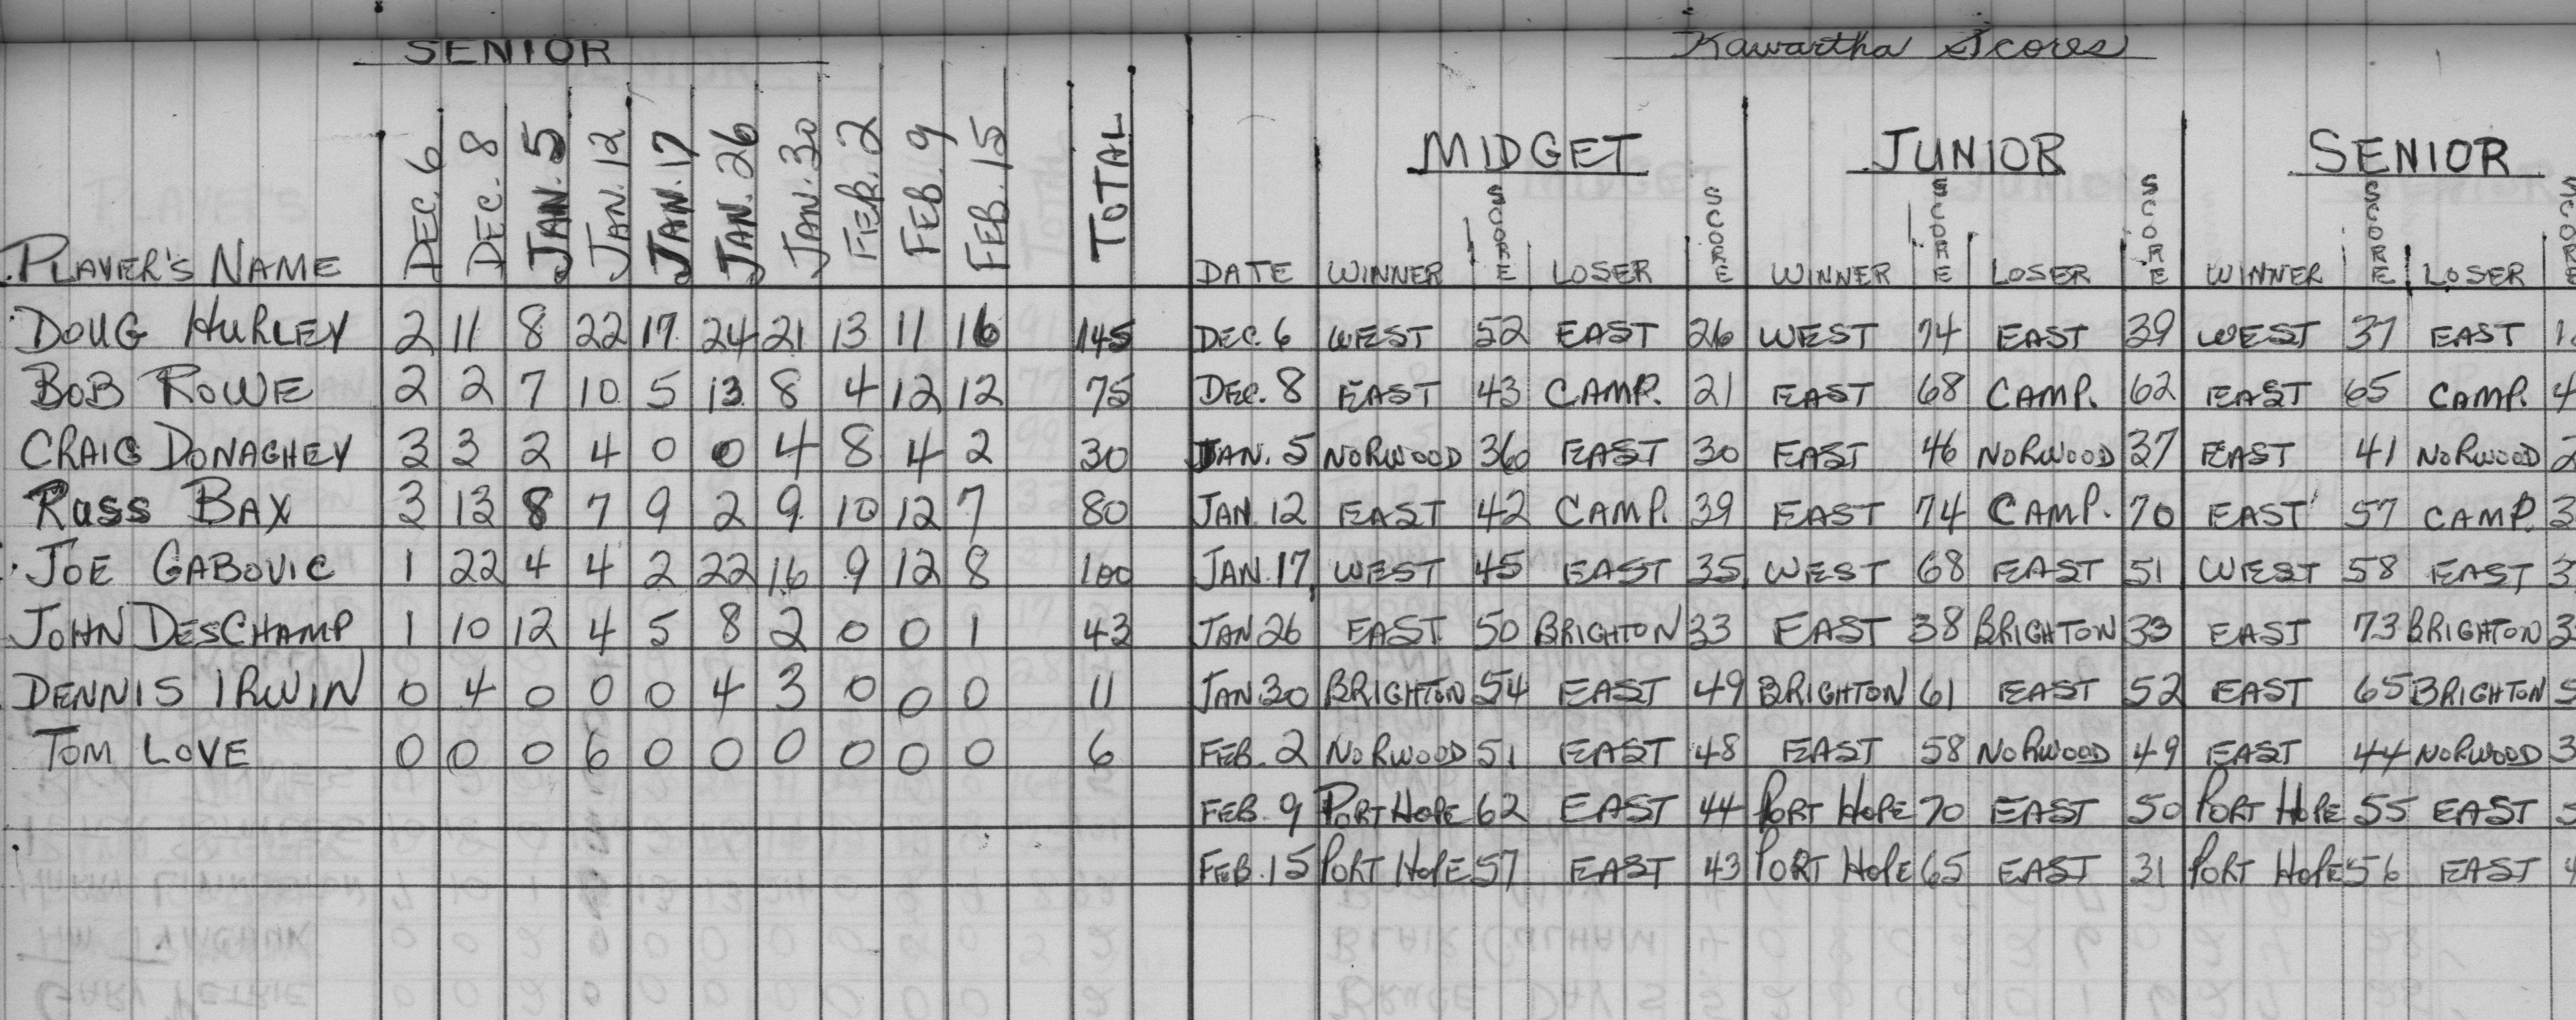 SENIOR
PLAYER'S NAME DEC. 6 DEC. 8 JAN. 5 JAN. 12 JAN. 17 JAN. 26 JAN. 30 FEB. 2 FEB. 9 FEB. 15 TOTAL
DOUG HURLEY 2 11 8 22 17 24 21 13 11 16 145
BOB ROWE 2 2 7 10 5 13 8 4 12 12 75
CRAIG DONAGHEY 3 3 2 4 0 0 4 8 4 2 30
RUSS BAX 3 13 8 7 9 2 9 10 12 7 80
JOE GABOVIC 1 22 4 4 2 22 16 9 12 8 100
JOHN DESCHAMP 1 10 12 4 5 8 2 0 0 1 43
DENNIS IRWIN 0 4 0 0 0 4 3 0 0 0 11
TOM LOVE 0 0 0 6 0 0 0 0 0 0 6
Kawartha Scores
MIDGET JUNIOR SENIOR
DATE WINNER SCORE LOSER SCORE WINNER SCORE LOSER SCORE WINNER SCORE LOSER SCORE
DEC. 6 WEST 52 EAST 26 WEST 74 EAST 39 WEST 37 EAST
DEC. 8 EAST 43 CAMP. 21 EAST 68 CAMP. 62 EAST 65 CAMP.
JAN. 5 NORWOOD 36 EAST 30 EAST 46 NORWOOD 37 EAST 41 NORWOOD
JAN. 12 EAST 42 CAMP. 39 EAST 74 CAMP. 70 EAST 57 CAMP.
JAN. 17 WEST 45 EAST 35 WEST 68 EAST 51 WEST 58 EAST
JAN 26 EAST 50 BRIGHTON 33 EAST 38 BRIGHTON 33 EAST 73 BRIGHTON
JAN. 30 BRIGHTON 54 EAST 49 BRIGHTON 61 EAST 52 EAST 65 BRIGHTON
FEB. 2 NORWOOD 51 EAST 48 EAST 58 NORWOOD 49 EAST 44 NORWOOD
FEB. 9 PORT HOPE 62 EAST 44 PORT HOPE 70 EAST 50 PORT HOPE 55 EAST
FEB. 15 PORT HOPE 57 EAST 43 PORT HOPE 65 EAST 31 PORT HOPE 56 EAST